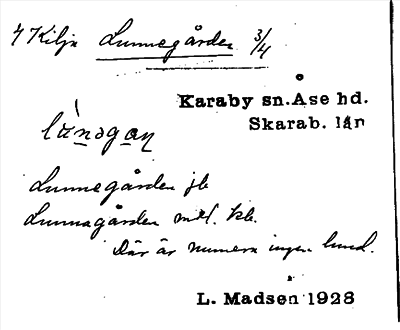 Kilja Lunnegården 3/4
Karaby sn. Åse hd.
Skarab. län
Lunnegården jb
Lunnagården mtl. kb.
Där är numera ingen lund.
L. Madsen 1928